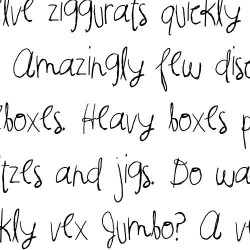 lve ziggurats quickly
Amazingly few disc
lboxes. Heavy boxes p
tzes and jigs. Do wa
kly vex Jumbo? A v